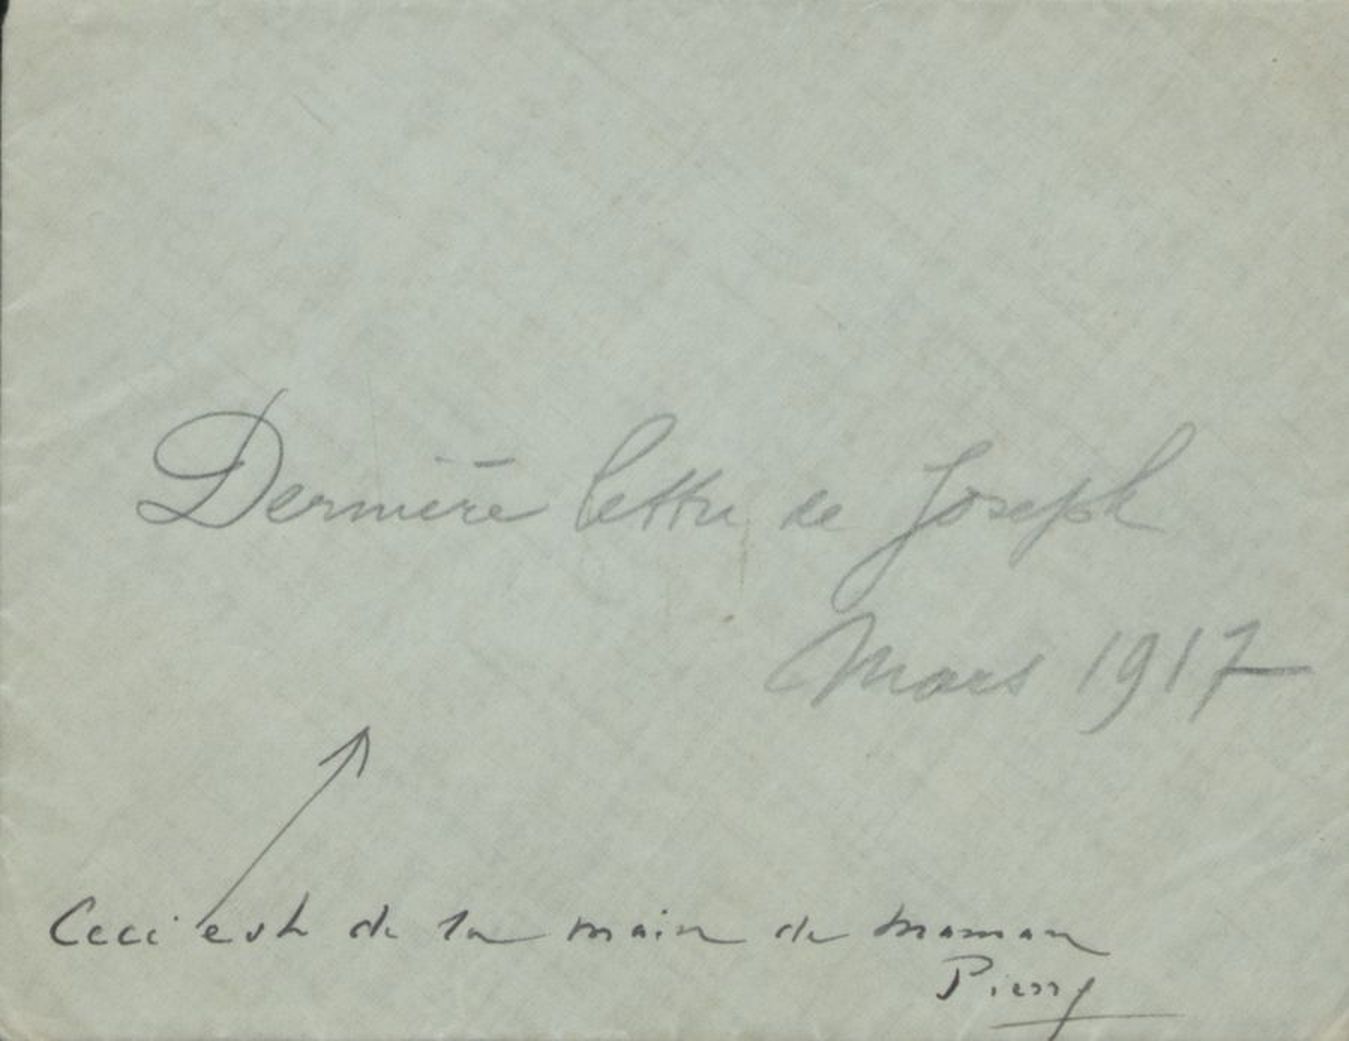 Dernière lettre de Joseph
Mars 1917
Ceci est de la main de maman
Pierre